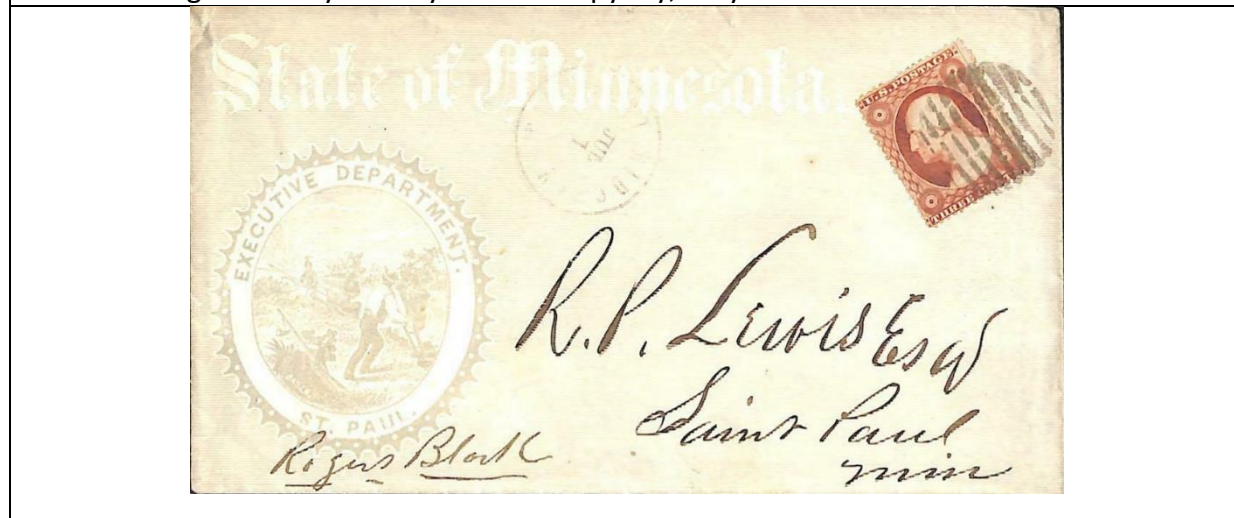 State of Minnesota.
U.S. POSTAGE
THREE
JUL
EXECUTIVE DEPARTMENT.
ST. PAUL.
R. P. Lewis Esq
Saint Paul
Min
Rogers Block